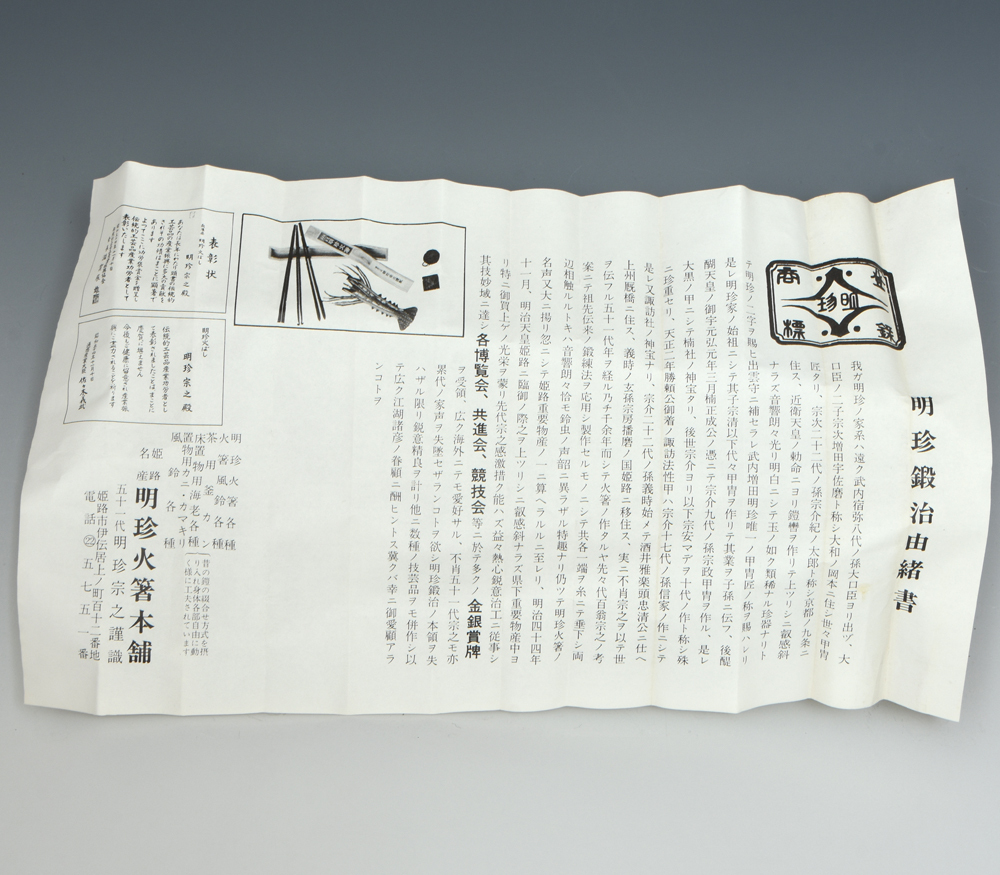 明珍鍛治由緒書
登録
商標
明珍
我ガ明珍ノ家系ハ遠ク武内宿弥八代ノ孫大口臣ヨリ出ヅ、大
口臣ノ二子宗次増田宇佐磨ト称シ大和ノ岡本ニ住シ世々甲冑
匠タリ、宗次二十二代ノ孫宗介紀ノ太郎ト称シ京都ノ九条ニ
住ス、近衛天皇ノ勅命ニヨリ鎧轡ヲ作リテ上ツリシニ叡感斜
ナラズ音響朗々光リ明白ニシテ玉ノ如ク類稀ナル珍器ナリト
テ明珍ノ二字ヲ賜ヒ出雲守ニ補セラレ武内増田明珍唯一ノ甲冑匠ノ称ヲ賜ハシリ
是レ明珍家ノ始祖ニシテ其子宗清以下代々甲冑ヲ作リテ其業ヲ子孫ニ伝フ、後醍
醐天皇ノ御宇元弘元年三月楠正成公ノ憑ニテ宗介九代ノ孫宗政甲冑ヲ作ル、是レ
大黒ノ甲ニシテ楠社ノ神宝タリ、後世宗介ヨリ以下宗安マデヲ十代ノ作ト称シ殊
ニ珍重セリ、天正二年勝頼公御着ノ諏訪法性甲ハ宗介十七代ノ孫信家ノ作ニシテ
是レ又諏訪社ノ神宝ナリ、宗介二十二代ノ孫義時始メテ酒井雅楽頭忠清公ニ仕ヘ
上州厩橋ニ住ス、義時ノ玄孫宗房播磨ノ国姫路ニ移住ス、実ニ不肖宗之ヲ以テ世
ヲ伝フル五十一代年ヲ経ル乃チ千余年而シテ火箸ノ作タルヤ先々代百翁宗之ノ考
案ニテ祖先伝来ノ鍛練法ヲ応用シ製作セルモノニシテ共各一端ヲ糸ニテ垂下シ両
辺相触ルルトキハ音響朗々恰モ鈴虫ノ声韶ニ異ラザル特趣ナリ仍ツテ明珍火箸ノ
名声又大ニ揚リ忽ニシテ姫路重要物産ノ一ニ算ヘラルルニ至レリ、明治四十四年
十一月、明治天皇姫路ニ臨御ノ際之ヲ上ツリシニ叡感斜ナラズ県下重要物産中ヨ
リ特ニ御買上ゲノ光栄ヲ蒙リ先代宗之感激措ク能ハズ益々熱心鋭意治工ニ従事シ
其技妙域ニ達シ各博覧会、共進会、競技会等ニ於テ多クノ金銀賞牌
ヲ受領、広ク海外ニテモ愛好サル、不肖五十一代宗之モ亦
累代ノ家声ヲ失墜セザランコトヲ欲シ明珍鍛治ノ本領ヲ失
ハザル限リ鋭意精良ヲ計リ他ニ数種ノ技芸品ヲモ併作シ以
テ広ク江湖諸彦ノ眷顧ニ酬ヒントス冀クバ幸ニ御愛顧アラ
ンコトヲ
表彰状
明珍宗之殿
あなたは長年にわたり
伝統的工芸品産業功労者として
表彰いたします
明珍火ばし
明珍宗之殿
伝統的工芸品産業功労者とし
て表彰されましたことはまことに
明珍火箸各種
火箸風鈴各種
茶用釜カン
床置物用海老各種
置物用カニ・カマキリ
風鈴各種
昔の鎧の組合せ方式を摂
り入れ身体各部自由に動
く様に工夫されています
姫路
名産
明珍火箸本舗
五十一代明珍宗之謹識
姫路市伊伝居上ノ町百十二番地
電話㉒五七五一番